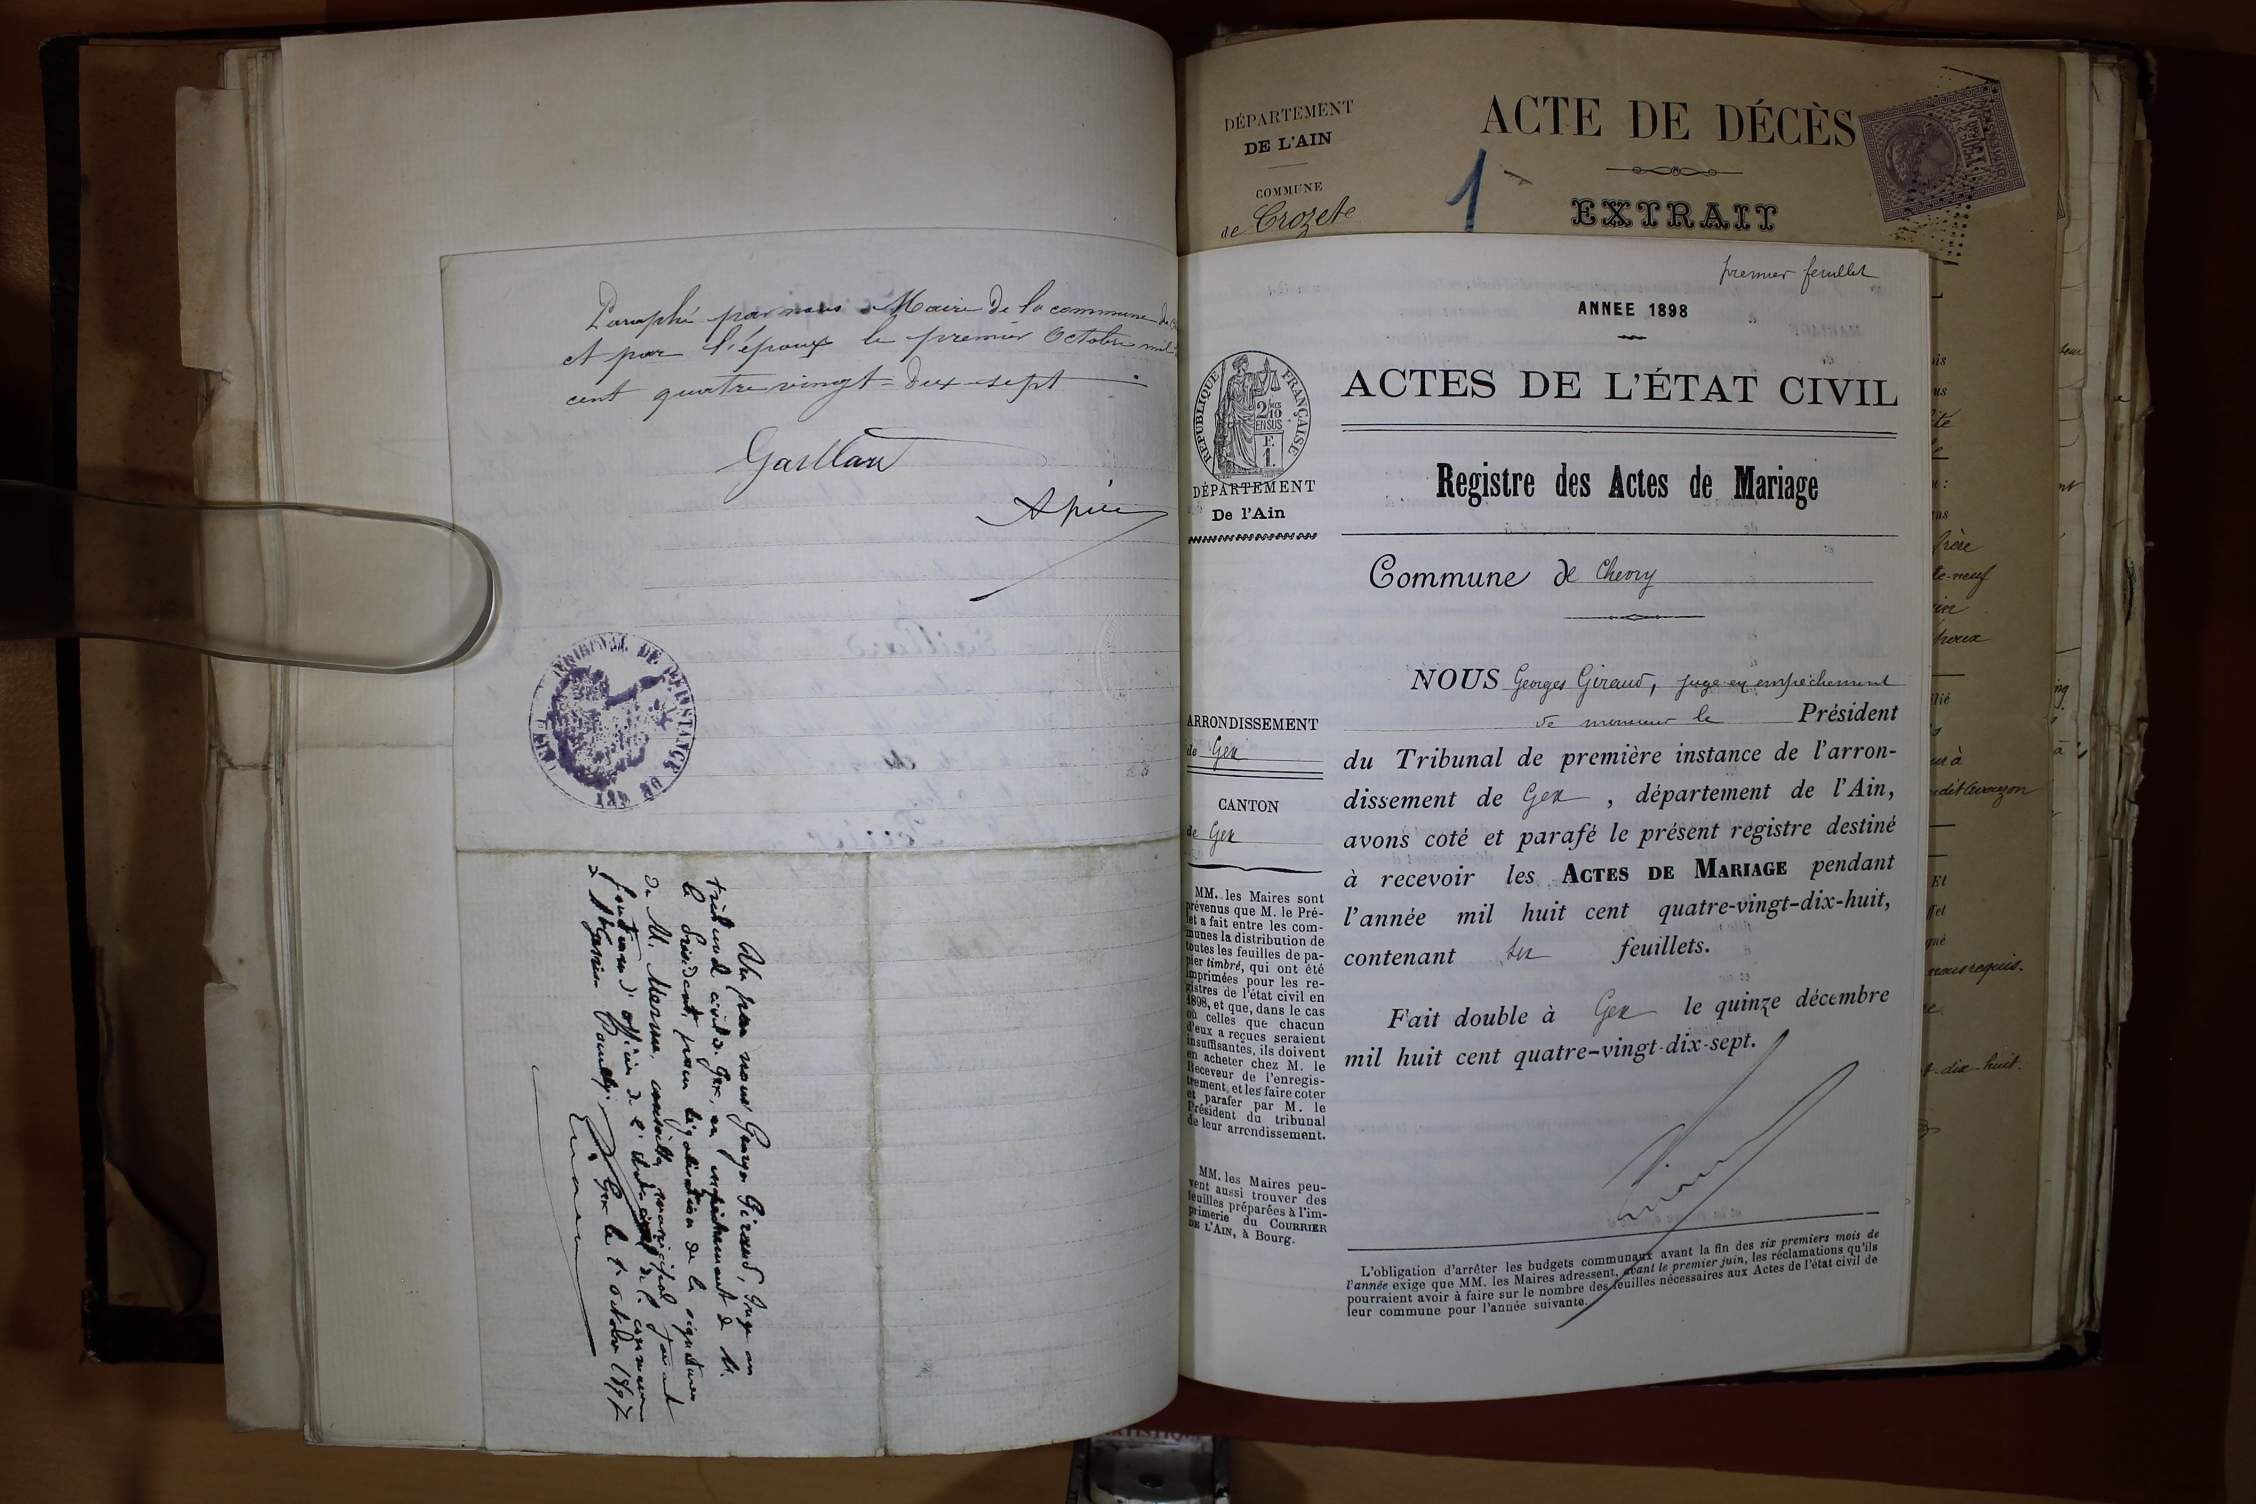 Paraphé par nous Maire de la commune de
et par l'époux le premier Octobre mil
cent quatre vingt-dix-sept
TRIBUNAL DE 1RE INSTANCE DE GEX
Vu par nous Georges Giraud, Juge au
tribunal civil de Gex, en empêchement de M.
le Président, pour légalisation de la signature
de M. Mermé, conseiller municipal faisant
fonctions d'officier de l'état civil de la commune
Gex le 1er octobre 1897
DÉPARTEMENT
DE L'AIN
COMMUNE
de Crozet
ACTE DE DÉCÈS
1
EXTRAIT
premier feuillet
ANNÉE 1898
RÉPUBLIQUE FRANÇAISE
ACTES DE L'ÉTAT CIVIL
Registre des Actes de Mariage
DÉPARTEMENT
De l'Ain
Commune de Chevry
NOUS Georges Giraud, juge en empêchement
de monsieur le Président
du Tribunal de première instance de l'arron-
dissement de Gex, département de l'Ain,
avons coté et parafé le présent registre destiné
à recevoir les ACTES DE MARIAGE pendant
l'année mil huit cent quatre-vingt-dix-huit,
contenant six feuillets.
Fait double à Gex le quinze décembre
mil huit cent quatre-vingt-dix-sept.
ARRONDISSEMENT
de Gex
CANTON
de Gex
MM. les Maires sont
prévenus que M. le Pré-
fet a fait entre les com-
munes la distribution de
toutes les feuilles de pa-
pier timbré, qui ont été
imprimées pour les re-
gistres de l'état civil en
1898, et que, dans le cas
où celles que chacun
d'eux a reçues seraient
insuffisantes, ils doivent
en acheter chez M. le
Receveur de l'enregis-
trement, et les faire coter
et parafer par M. le
Président du tribunal
de leur arrondissement.
MM. les Maires peu-
vent aussi trouver des
feuilles préparées à l'im-
primerie du COURRIER
DE L'AIN, à Bourg.
L'obligation d'arrêter les budgets communaux avant la fin des six premiers mois de
l'année exige que MM. les Maires adressent, avant le premier juin, les réclamations qu'ils
pourraient avoir à faire sur le nombre des feuilles nécessaires aux Actes de l'état civil de
leur commune pour l'année suivante.